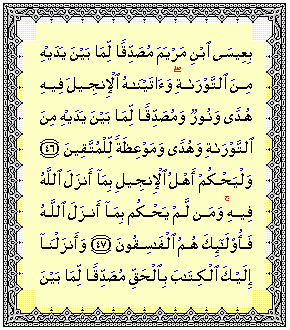 بِعِيسَى ٱبْنِ مَرْيَمَ مُصَدِّقًا لِّمَا بَيْنَ يَدَيْهِ
مِنَ ٱلتَّوْرَىٰةِ ۖ وَءَاتَيْنَٰهُ ٱلْإِنجِيلَ فِيهِ
هُدًى وَنُورٌ وَمُصَدِّقًا لِّمَا بَيْنَ يَدَيْهِ مِنَ
ٱلتَّوْرَىٰةِ وَهُدًى وَمَوْعِظَةً لِّلْمُتَّقِينَ ٤٦
وَلْيَحْكُمْ أَهْلُ ٱلْإِنجِيلِ بِمَآ أَنزَلَ ٱللَّهُ
فِيهِ ۚ وَمَن لَّمْ يَحْكُم بِمَآ أَنزَلَ ٱللَّهُ
فَأُو۟لَٰٓئِكَ هُمُ ٱلْفَٰسِقُونَ ٤٧ وَأَنزَلْنَآ
إِلَيْكَ ٱلْكِتَٰبَ بِٱلْحَقِّ مُصَدِّقًا لِّمَا بَيْنَ